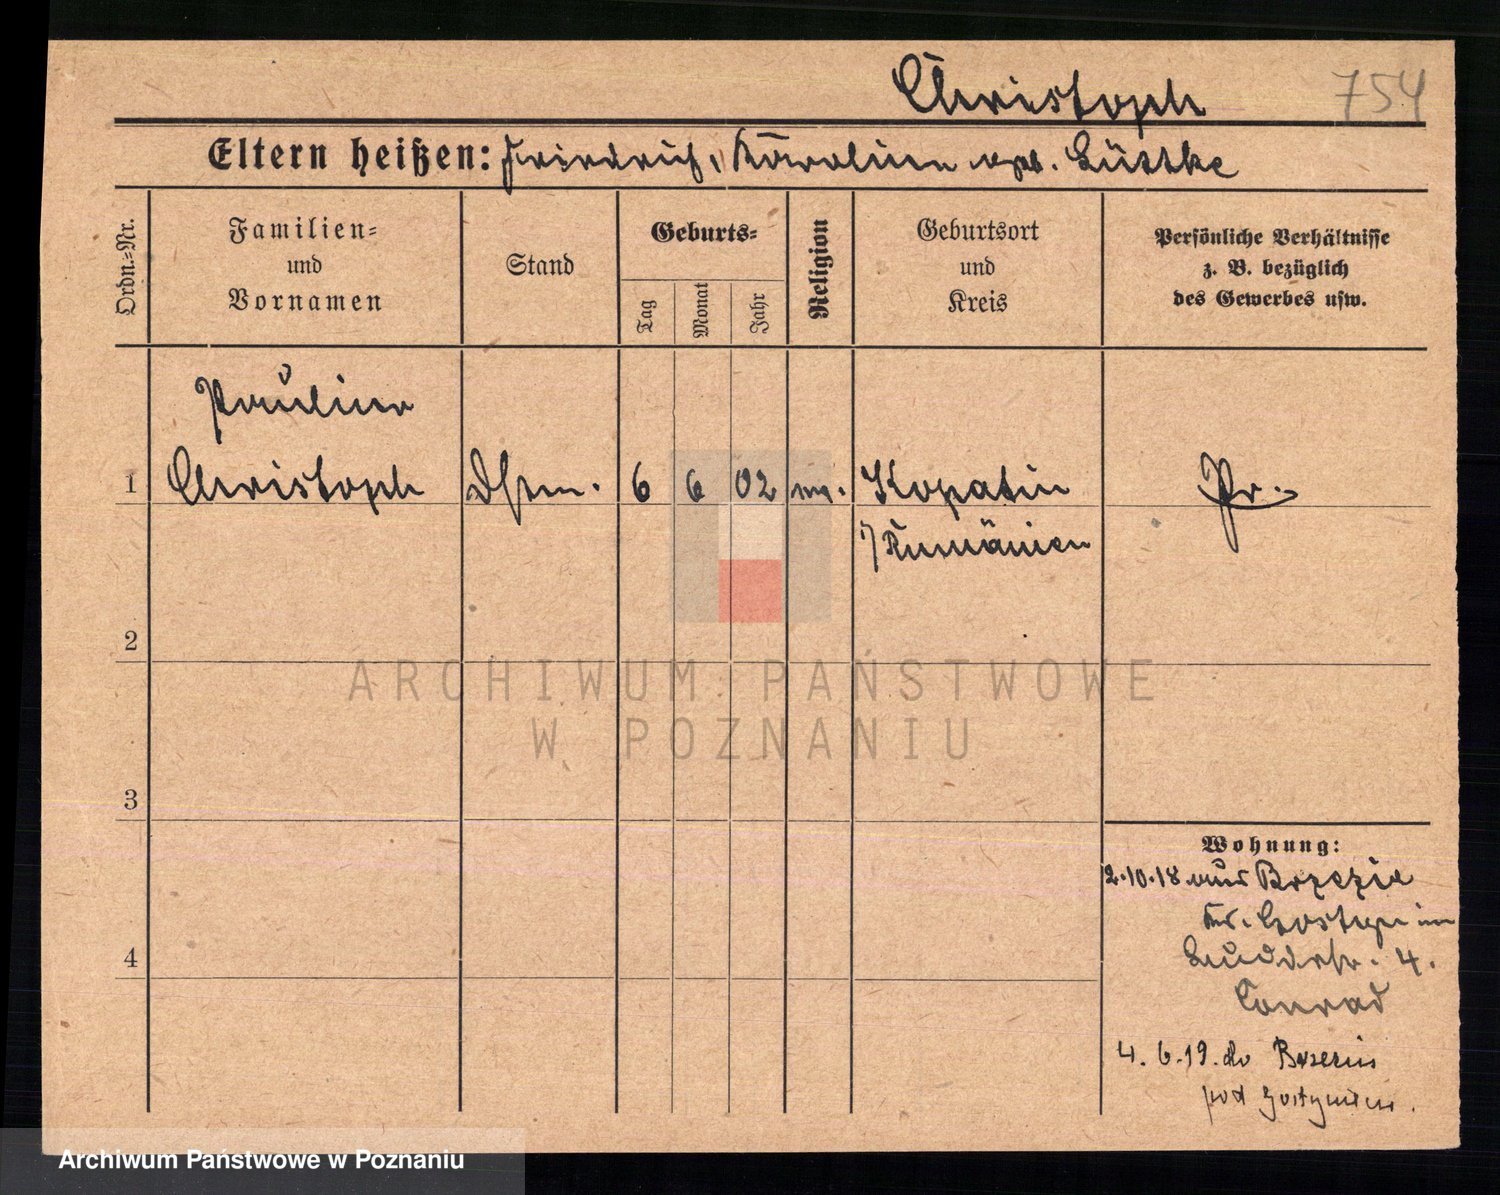 Christoph 754
Eltern heißen: Friedrich, Karoline geb. Lüttke
Ordn.-Nr.
Familien-
und
Vornamen
Stand
Geburts-
Tag
Monat
Jahr
Religion
Geburtsort
und
Kreis
Persönliche Verhältnisse
z. B. bezüglich
des Gewerbes usw.
Pauline
1 Christoph 6 6 02 Kopatin Pr.
i/ Rumänien
2
ARCHIWUM PAŃSTWOWE
W POZNANIU
3
Wohnung:
2.10.18 aus Brzezie
Kr. Gostyn
4
4.
Conrad
4.6.19. do Brzezia
pod Gostyniem.
Archiwum Państwowe w Poznaniu